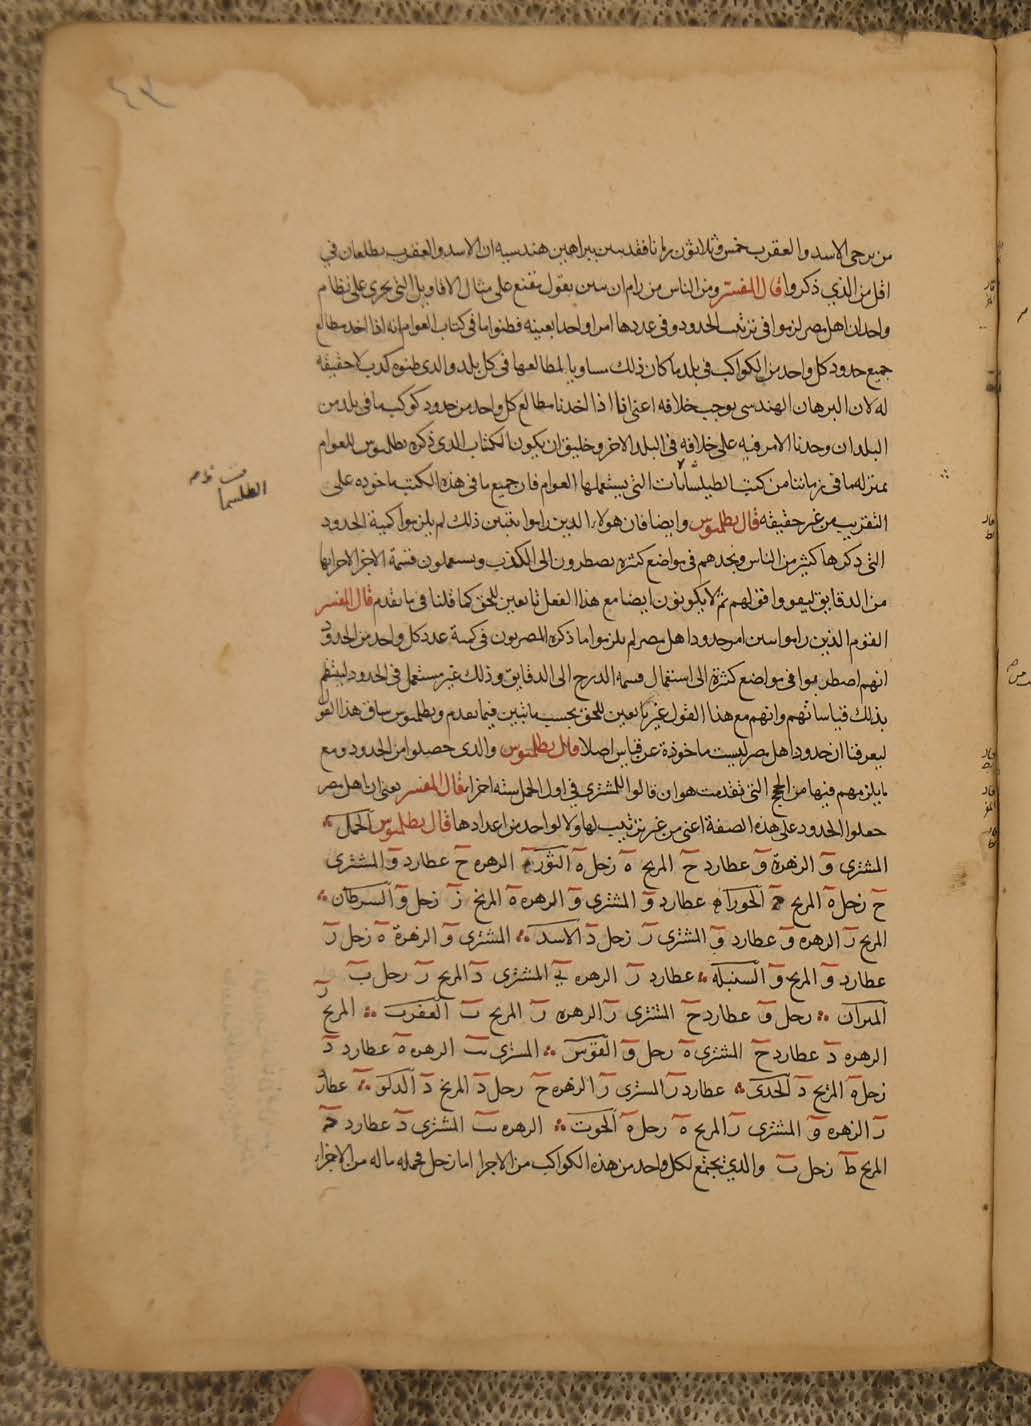 من برجي الاسد والعقرب خمس وثلاثون زمانا فقد بين ببراهين هندسيه ان الاسد والعقرب يطلعان في
اقل من الذي ذكروا قال المفسر ومن الناس من رام ان يبين بقول مقنع على مثال الاقاويل التي يجرى على نظام
واحد ان اهل مصر لزموا في ترتيب الحدود وفي عددها امرا واحدا بعينه فظنوا ما في كتاب العوام انه اذا اخذ مطالع
جميع حدود كل واحد من الكواكب في بلد ما كان ذلك مساويا لمطالعها في كل بلد والذى ظنوه كذب لا حقيقه
له لان البرهان الهندسى يوجب خلافه اعنى انا اذا اخذنا مطالع كل واحد من حدود كوكب ما في بلد من
البلدان وجدنا الامر فيه على خلافه في البلد الاخر وخليق ان يكون الكتاب الذى ذكره بطلميوس للعوام
بمنزله ما في زماننا من كتب الطيلسانات التي يستعملها العوام فان جميع ما في هذه الكتب ماخوذه على
الطلسما
التقريب من غير حقيقه قال بطلميوس وايضا فان هولاء الذين راموا تبيين ذلك لم يلزموا كمية الحدود
التي ذكرها كثير من الناس ونجدهم في مواضع كثيره يضطرون الى الكذب ويستعملون قسمة الاجزا لاجزائها
من الدقايق ليقووا قولهم ثم لا يكونون ايضا مع هذا الفعل تابعين للحق كما قلنا في ما تقدم قال المفسر
القوم الذين راموا تبيين امر حدود اهل مصر لم يلزموا ما ذكره المصريون في كمية عدد كل واحد من الحدود
انهم اضطربوا في مواضع كثيرة الى استعمال قسمه الدرج الى الدقايق وذلك غير مستعمل في الحدود لينتظم
بذلك قياساتهم وانهم مع هذا القول غير تابعين للحق بحسب ما تبين فيما تقدم وبطلميوس ساق هذا القول
ليعرفنا ان حدود اهل مصر ليست ماخوذة عن قياس اصلا قال بطلميوس والذى حصلوا من الحدود ومع
ما يلزمهم فيها من الحجج التي تقدمت هو ان قالوا للمشترى في اول الحمل ستة اجزا قال المفسر يعنى ان اهل مصر
جعلوا الحدود على هذه الصفة اعنى من غير ترتيب لها ولا لواحد من اعدادها قال بطلميوس الحمل
المشترى و الزهرة و عطارد ح المريخ ه زحل ه الثور الزهره ح عطارد و المشترى
ح زحل ه المريخ ج الجوزا عطارد و المشترى و الزهره ه المريخ ز زحل و السرطان
المريخ ز الزهره و عطارد و المشترى ز زحل د الاسد المشترى و الزهرة ه زحل ز
عطارد و المريخ و السنبله عطارد ز الزهره ى المشترى د المريخ ز زحل ب
الميزان زحل و عطارد ح المشترى ز الزهره ز المريخ ب العقرب المريخ ز
الزهره د عطارد ح المشترى ه زحل و القوس المشترى يب الزهره ه عطارد د
زحل ه المريخ د الجدى عطارد ز المشترى ز الزهره ح زحل د المريخ د الدلو عطارد
ز الزهره و المشترى ز المريخ ه زحل ه الحوت الزهره يب المشترى د عطارد ج
المريخ ط زحل ب والذي يجتمع لكل واحد من هذه الكواكب من الاجزا اما زحل فجمله ما له من الاجزا